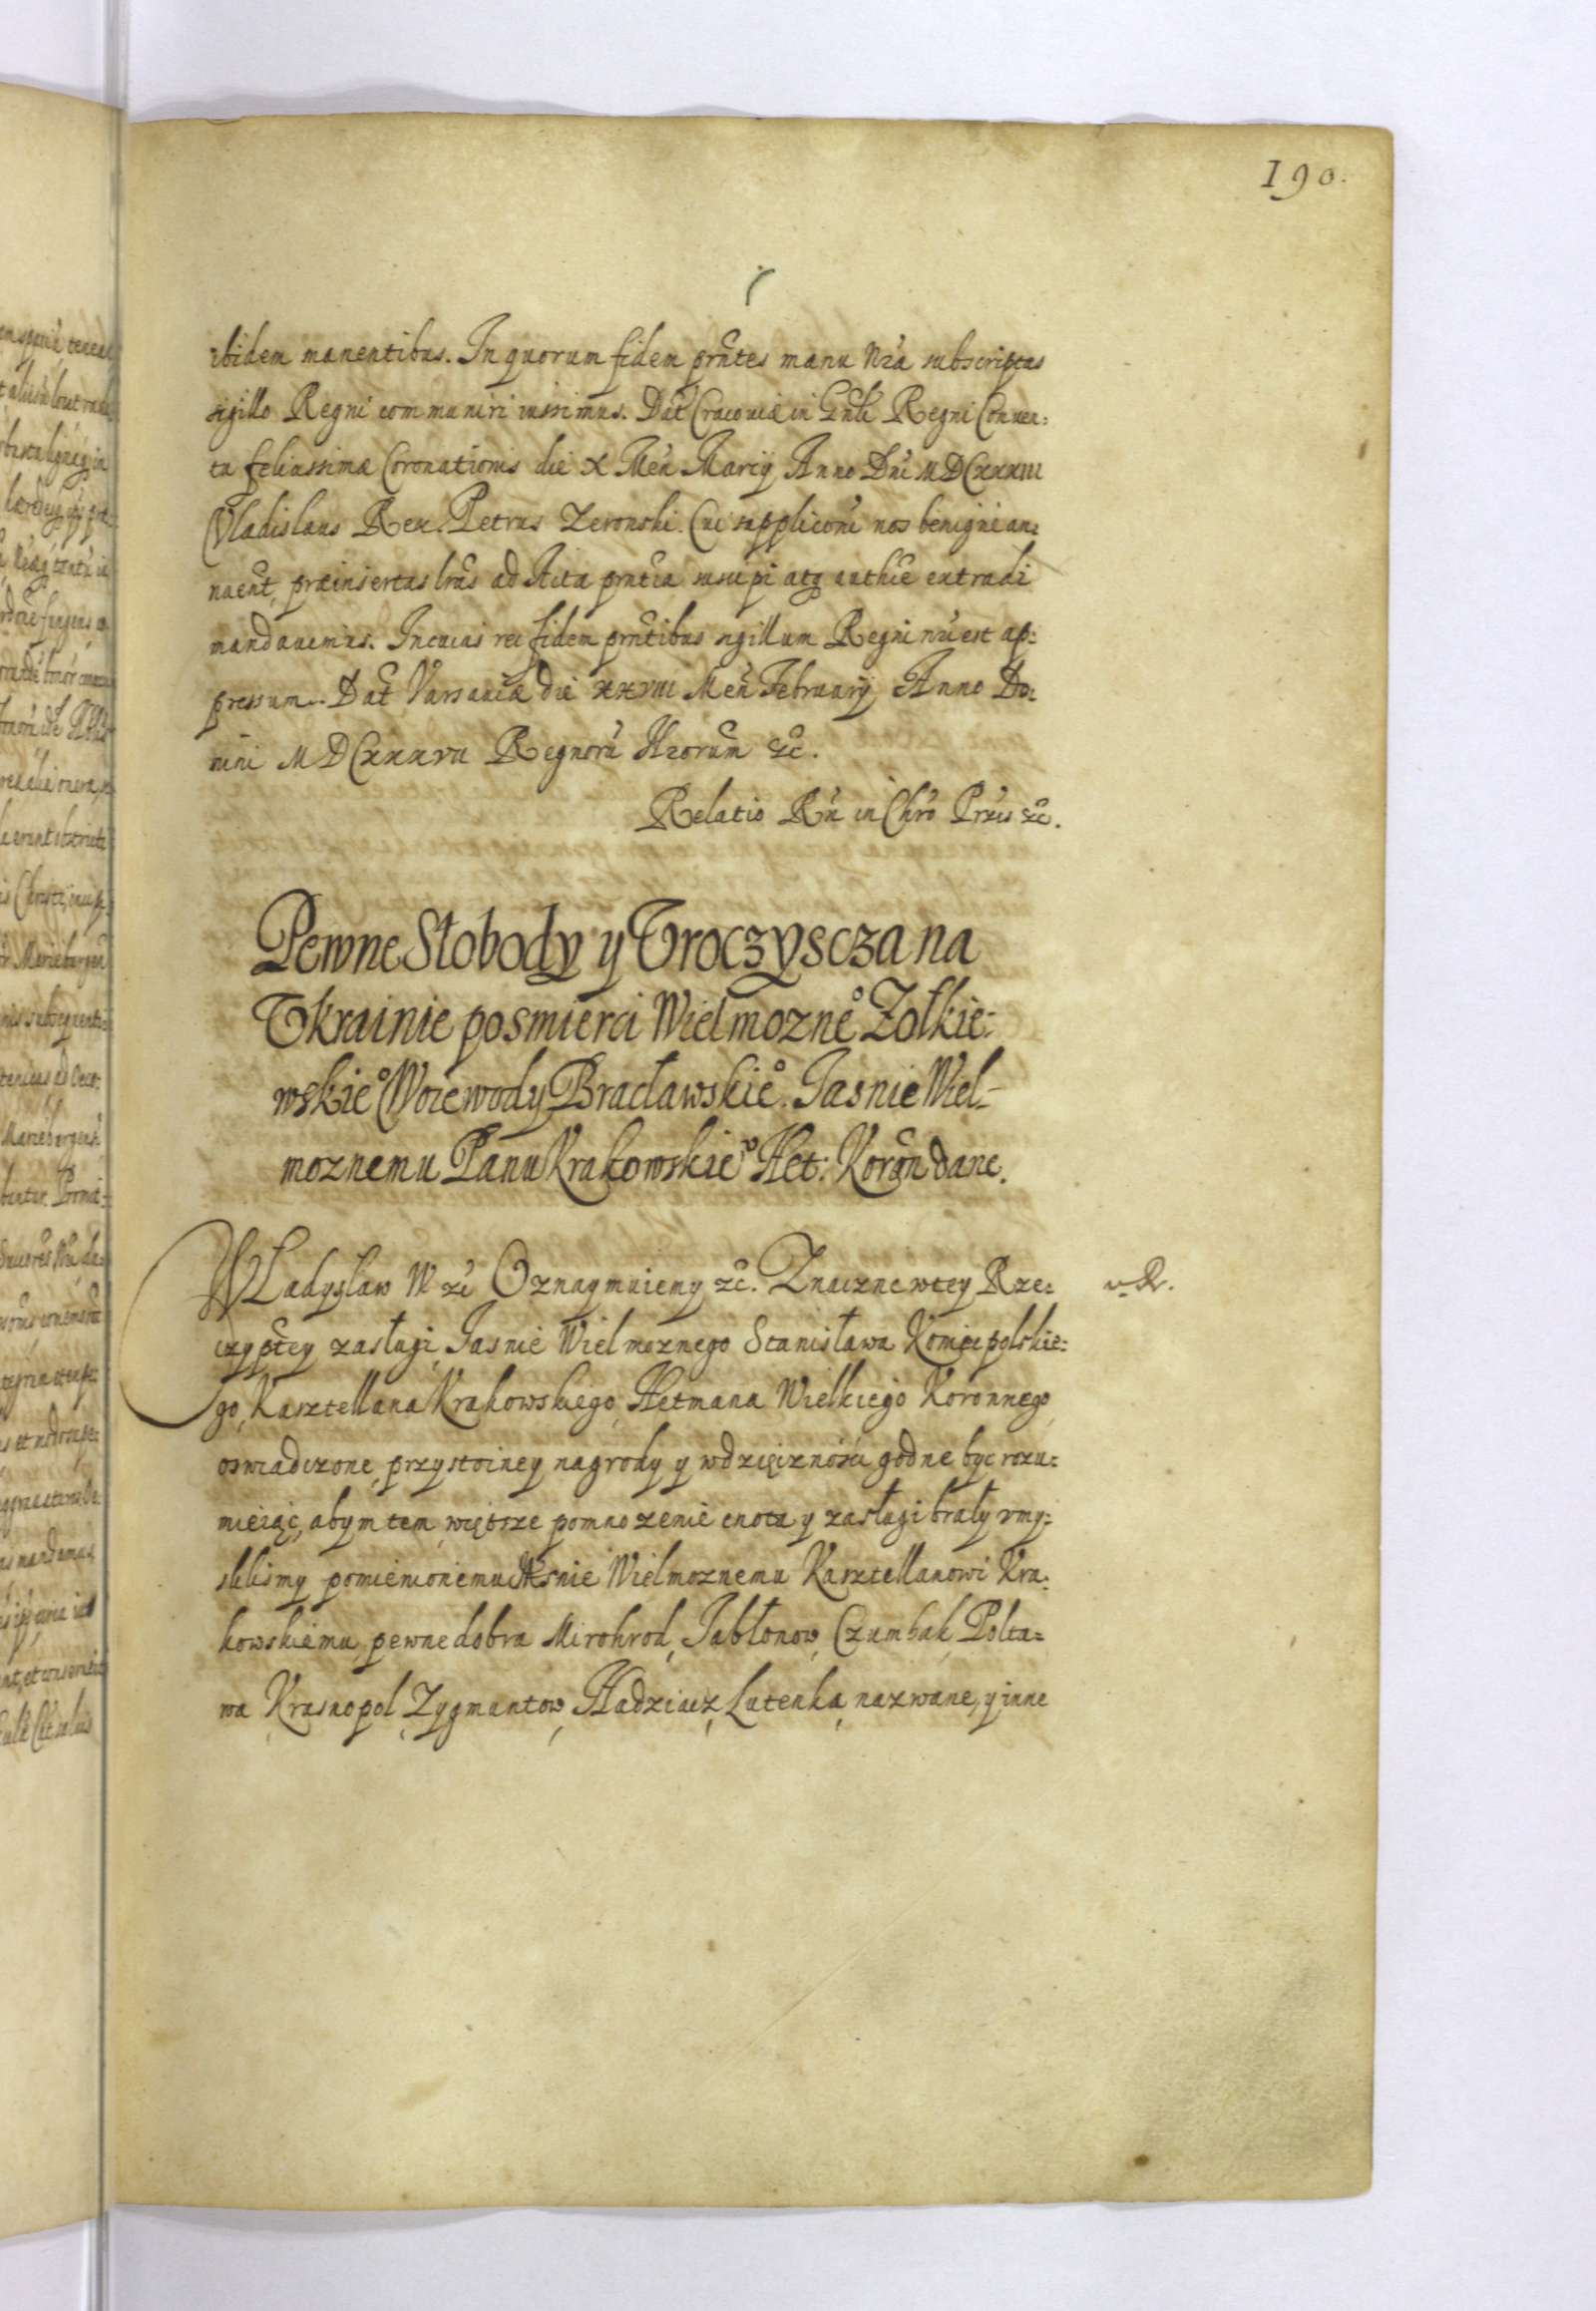 190.
ibidem manentibus. In quorum fidem prñtes manu Nrã subscriptas
sigillo Regni communiri iussimus. Dat Cracoviæ in Gnli Regni Conven:
tu felicissimæ Coronationis die X Men Marcij Anno Dni MDCXXXIII
Vladislaus Rex. Petrus Zeronski. Cui suppliconi nos benigne an:
nuent, præinsertas lras ad Acta prntia suscipi atq authce extradi
mandavimus. In cuius rei fidem prntibus sigillum Regni nri est ap:
pressum. Dat Varsaviæ die XXVIII Men Februarij Anno Do:
mini MDCXXXVII Regnoru Nrorum &c.
Relatio Rñ in Chro Pris &c.
Pewne Słobody y Uroczyscza na
Ukrainie po smierci Wielmozneº Zołkie:
wskieº Woiewody Bracławskieº. Jasnie Wiel-
moznemu Panu Krakowskieº Het: Koron dane.
WŁadysław IV &c Oznaymuiemy &c. Znaczne w tey Rze:
czyptey zasługi, Jasnie Wielmoznego Stanisława Koniecpolskie:
go, Kasztellana Krakowskiego, Hetmana Wielkiego Koronnego
oswiadczone, przystoiney nagrody y wdzięcznosci godne byc rozu:
mieiąc, abym tem większe pomnozenie cnota y zasługi brały vmy:
slilismy pomienionemu Jasnie Wielmoznemu Kasztellanowi Kra:
kowskiemu, pewne dobra Mirohrod, Jabłonow, Czumhak, Polta=
wa, Krasnopol, Zygmuntow, Hadziacz, Lutenka, nazwane, y inne